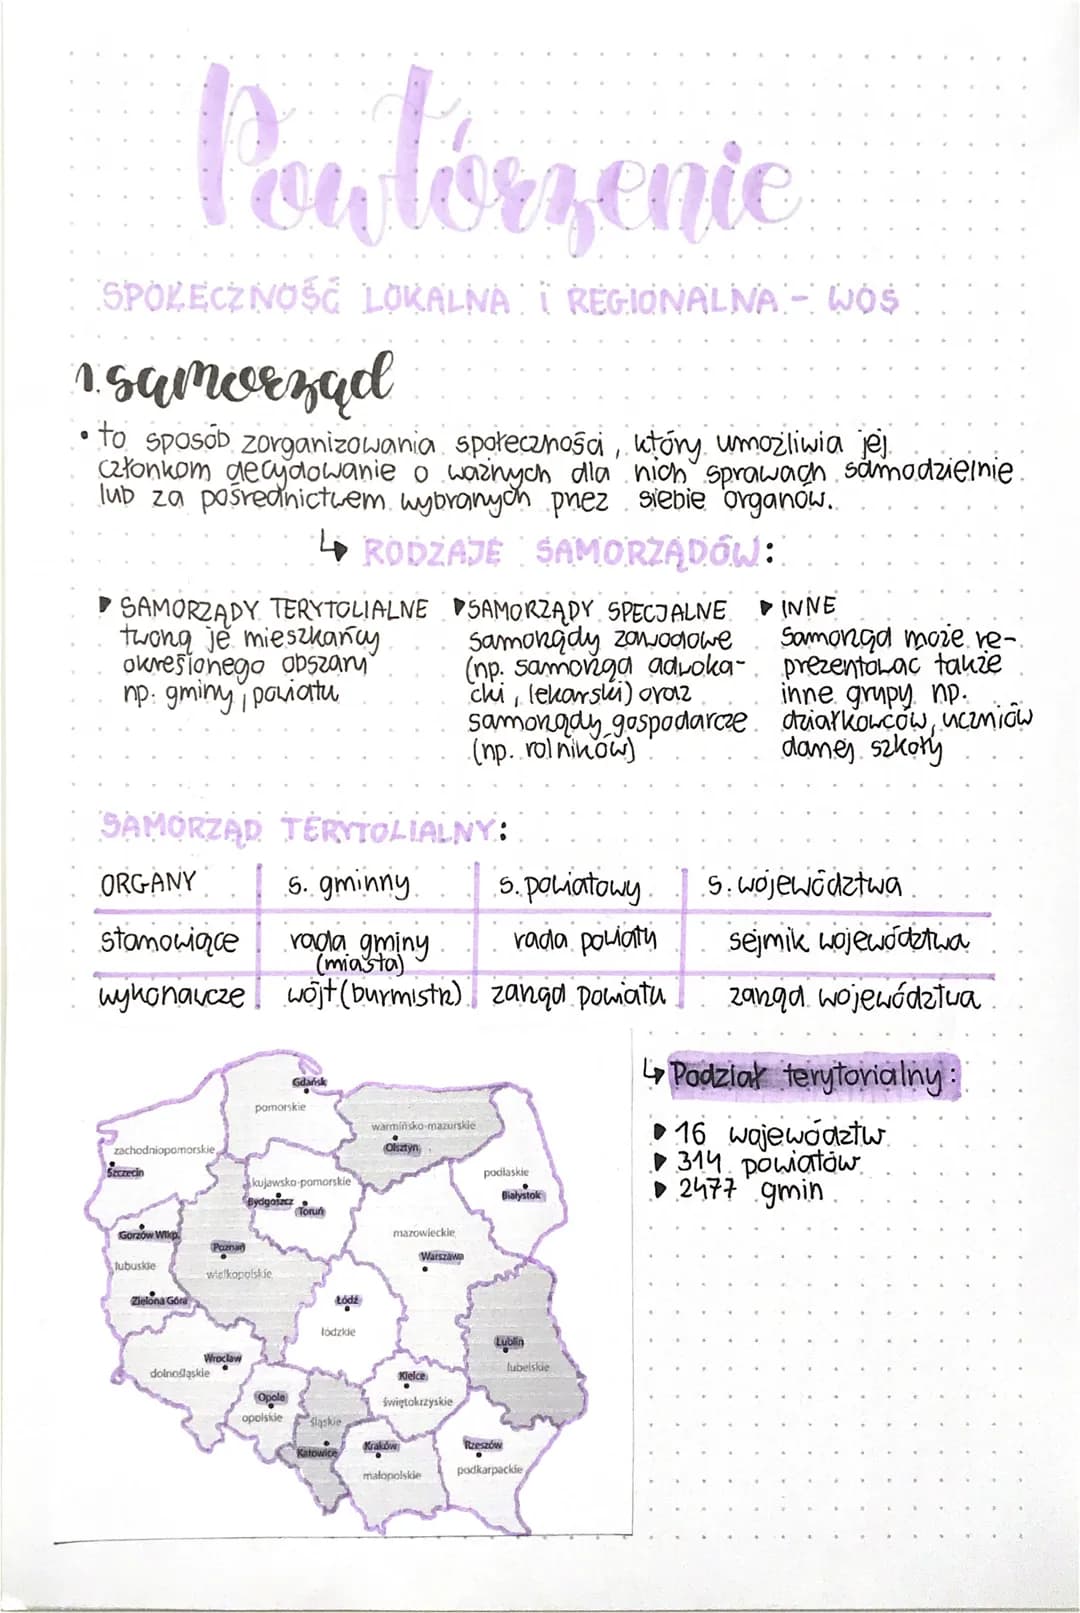 Powtórzenie
SPOŁECZNOŚĆ LOKALNA i REGIONALNA - WOS
1. samorząd
• to sposób zorganizowania społeczności, który umożliwia jej
członkom decydowanie o ważnych dla nich sprawach samodzielnie
lub za pośrednictwem wybranych przez siebie organów.
↳ RODZAJE SAMORZĄDÓW:
▶ SAMORZĄDY TERYTOLIALNE
tworzą je mieszkańcy
określonego obszaru
np. gminy, powiatu
▶ SAMORZĄDY SPECJALNE
samorządy zawodowe
(np. samorząd adwoka-
cki, lekarski) oraz
samorządy gospodarcze
(np. rolników)
▶ INNE
Samorząd może re-
prezentować także
inne grupy np.
działkowców, uczniów
danej szkoły
SAMORZĄD TERYTOLIALNY:
ORGANY s. gminny s. powiatowy s. województwa
stanowiące rada gminy (miasta) rada powiatu sejmik województwa
wykonawcze wójt (burmistrz) zarząd powiatu zarząd województwa
↳ Podział terytorialny:
▶ 16 województw
▶ 314 powiatów
▶ 2477 gmin
Gdańsk
pomorskie
warmińsko-mazurskie
Olsztyn
zachodniopomorskie
Szczecin
kujawsko-pomorskie
Bydgoszcz
Toruń
podlaskie
Białystok
Gorzów Wlkp.
lubuskie
Zielona Góra
Poznań
wielkopolskie
mazowieckie
Warszawa
Łódź
łódzkie
Lublin
lubelskie
Wrocław
dolnośląskie
Opole
opolskie
śląskie
Katowice
Kielce
świętokrzyskie
Kraków
małopolskie
Rzeszów
podkarpackie